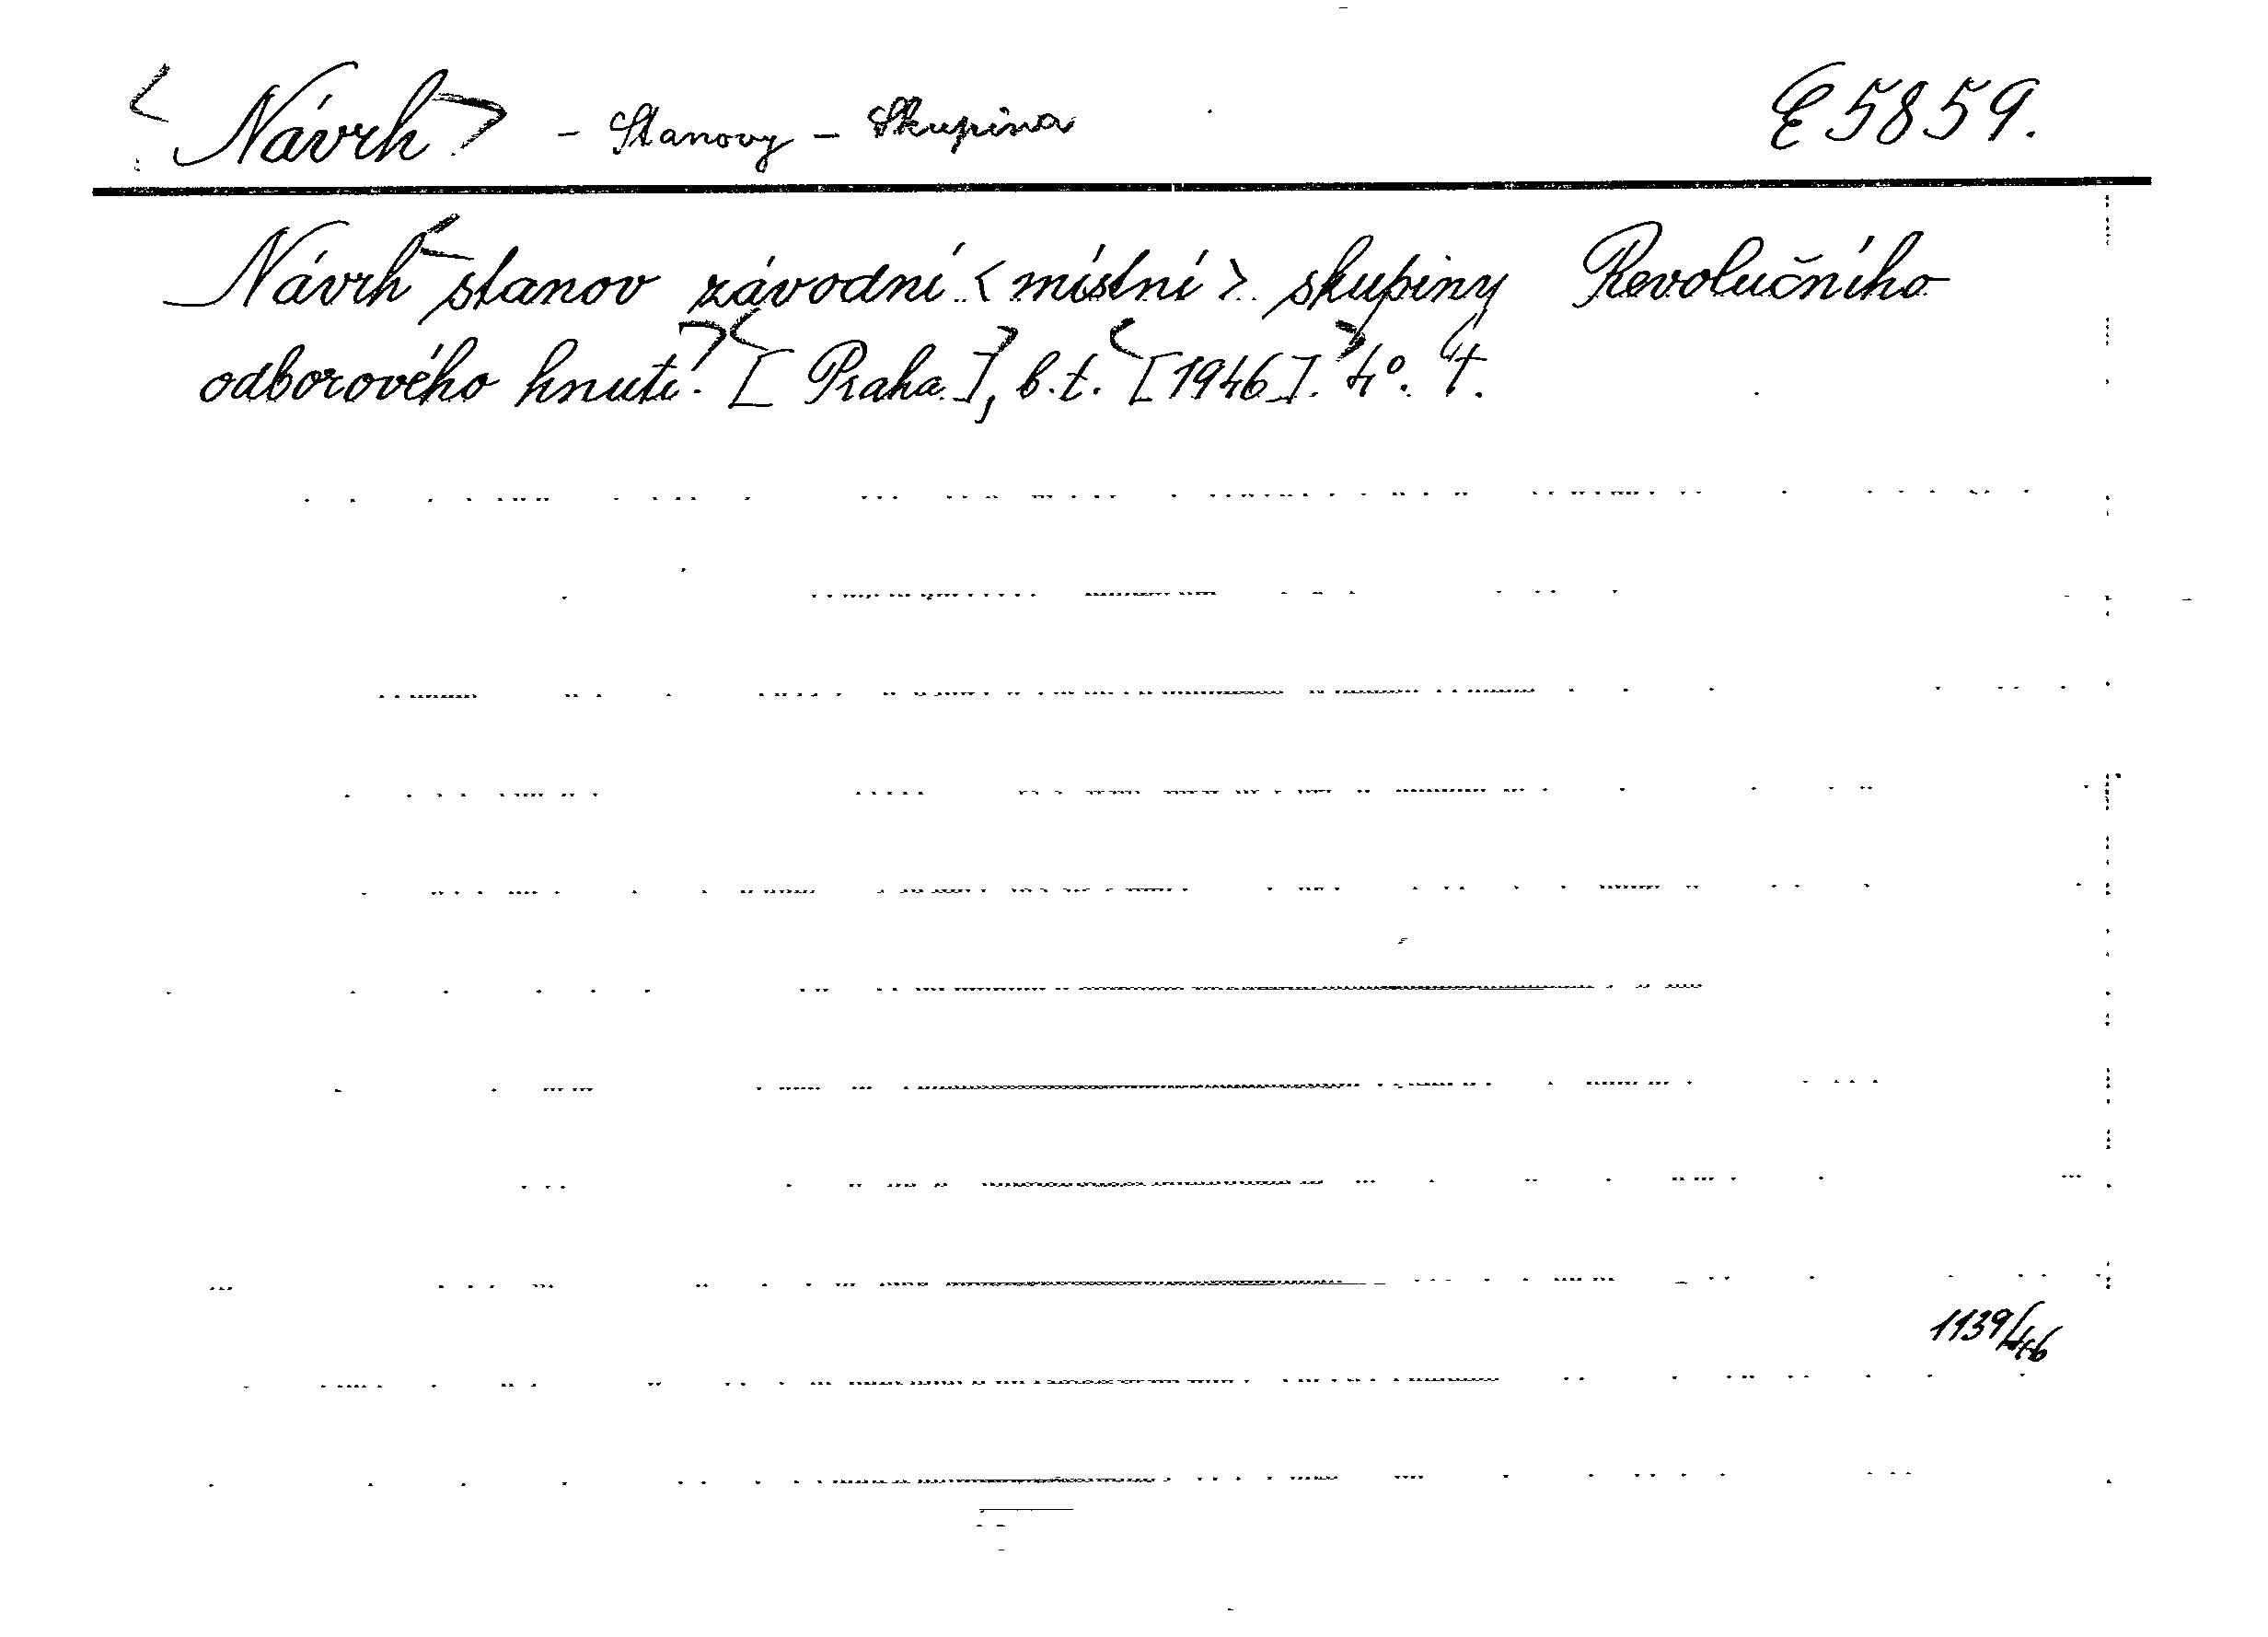 <Návrh> - Stanovy - Skupina E 5859.
Návrh stanov závodní <místní> skupiny Revolučního
odborového hnutí. [Praha], b.t. [1946]. 4°. 4.
1139/46